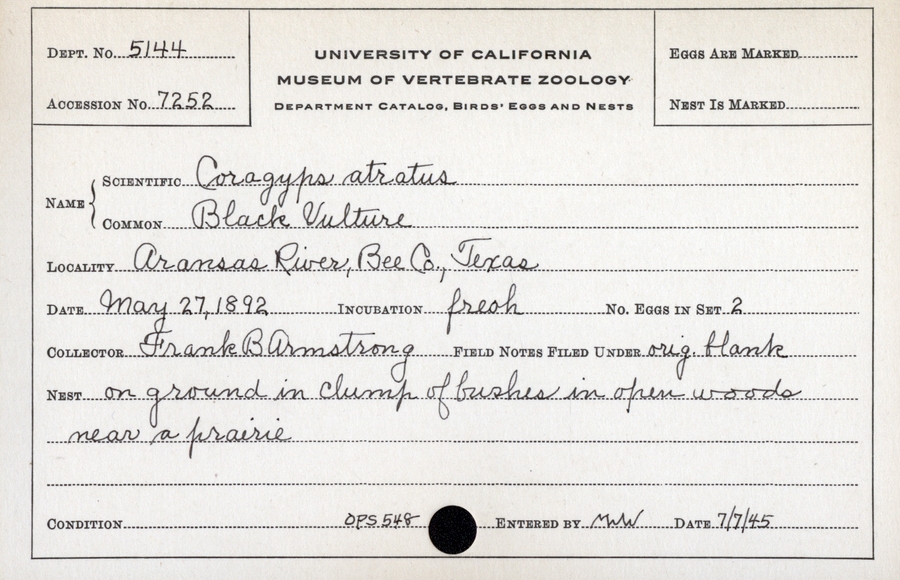 Dept. No. 5144
UNIVERSITY OF CALIFORNIA
MUSEUM OF VERTEBRATE ZOOLOGY
Department Catalog, Birds' Eggs and Nests
Accession No. 7252
Eggs Are Marked
Nest Is Marked
Name { Scientific Coragyps atratus
Common Black Vulture
Locality Aransas River, Bee Co., Texas
Date May 27, 1892 Incubation fresh No. Eggs in Set 2
Collector Frank B Armstrong Field Notes Filed Under orig. blank
Nest on ground in clump of bushes in open woods
near a prairie
Condition OPS 548 Entered by Date 7/7/45